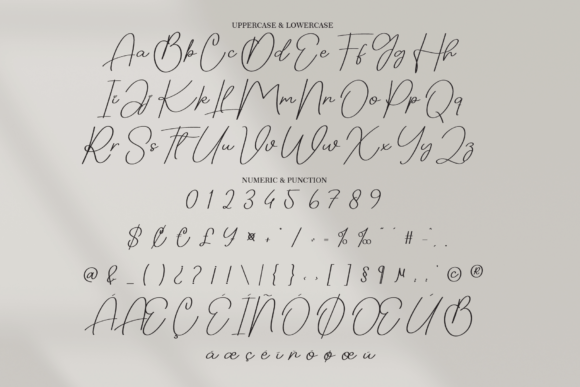 UPPERCASE & LOWERCASE
Aa Bb Cc Dd Ee Ff Gg Hh
Ii Jj Kk Ll Mm Nn Oo Pp Qq
Rr Ss Tt Uu Vv Ww Xx Yy Zz
NUMERIC & PUNCTION
0 1 2 3 4 5 6 7 8 9
$ ₡ € £ ¥ ¤ + / % ‰ #
@ & _ ( ) ¿ ? ! | \ | { } [ ] § ¶ µ © ®
À Æ Ç È Ì Ñ Ò Ø Œ Ù ß
a æ ç e i n o ø œ u